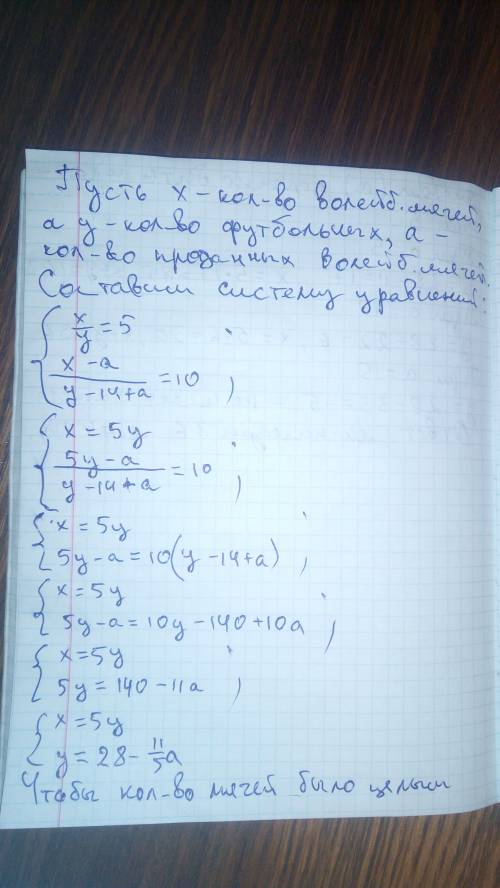 Пусть x – кол-во волейб. мячей,
а y – кол-во футбольных, a –
кол-во проданных волейб. мячей.
Составим систему уравнений:
{ x/y = 5
(x – a)/(y – 14 + a) = 10 ;
{ x = 5y
(5y – a)/(y – 14 + a) = 10 ;
{ x = 5y
5y – a = 10(y – 14 + a) ;
{ x = 5y
5y – a = 10y – 140 + 10a ;
{ x = 5y
5y = 140 – 11a ;
{ x = 5y
y = 28 – 11/5 a
Чтобы кол-во мячей было целым